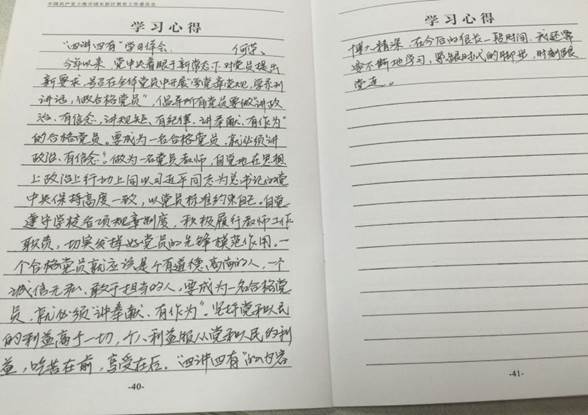 学习心得
"四讲四有"学习体会 何莹
今年以来，党中央着眼于新常态下对党员提出
新要求，号召在全体党员中开展"学党章党规、学系列
讲话，做合格党员"，倡导所有党员要做"讲政
治、有信念，讲规矩、有纪律，讲奉献、有作为"
的合格党员。要成为一名合格党员，就必须"讲
政治、有信念"。做为一名党员教师，自觉地在思想
上政治上行动上同以习近平同志为总书记的党
中央保持高度一致，以党员标准约束自己。自觉
遵守学校各项规章制度，积极履行教师工作
职责，切实发挥好党员的先锋模范作用。一
个合格党员就应该是个有道德、高尚的人，一个
诚信无私、敢于担当的人，要成为一名合格党
员，就必须"讲奉献、有作为"。坚持党和人民
的利益高于一切，个人利益服从党和人民的利
益，吃苦在前，享受在后。"四讲四有"的内容
-40-
学习心得
博大精深，在今后的很长一段时间，我还需
要不断地学习，紧跟时代的脚步，时刻跟
党走。
-41-